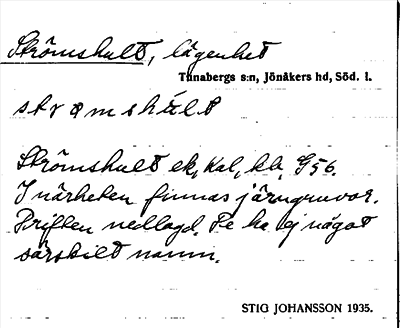 Strömshult, lägenhet
Tunabergs s:n, Jönåkers hd, Söd. l.
Strömshult ek, Kal, kb, G56.
I närheten finnas järngruvor.
Driften nedlagd. De ha ej något
särskilt namn.
STIG JOHANSSON 1935.